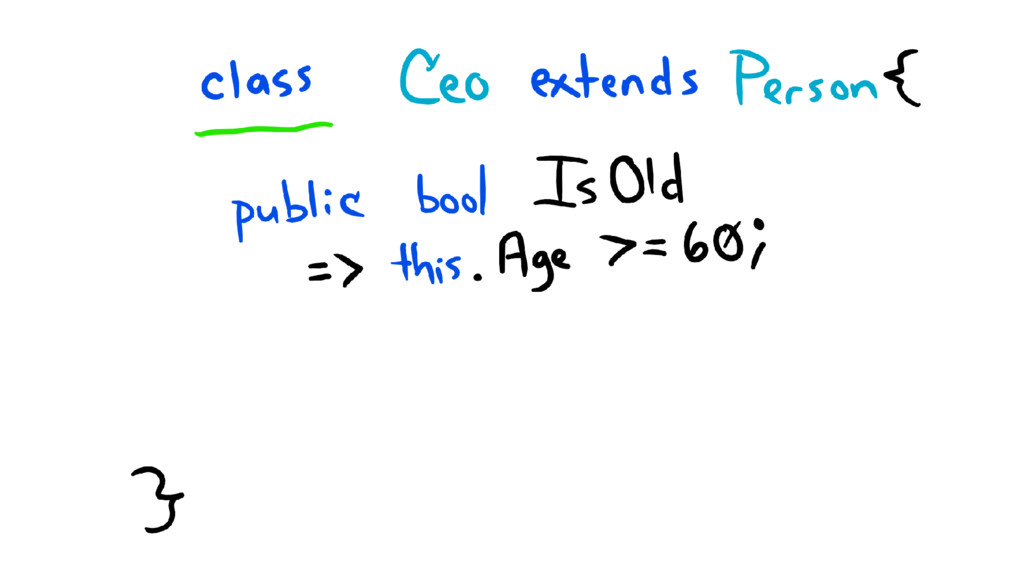 class Ceo extends Person {
public bool IsOld
=> this.Age >= 60;
}